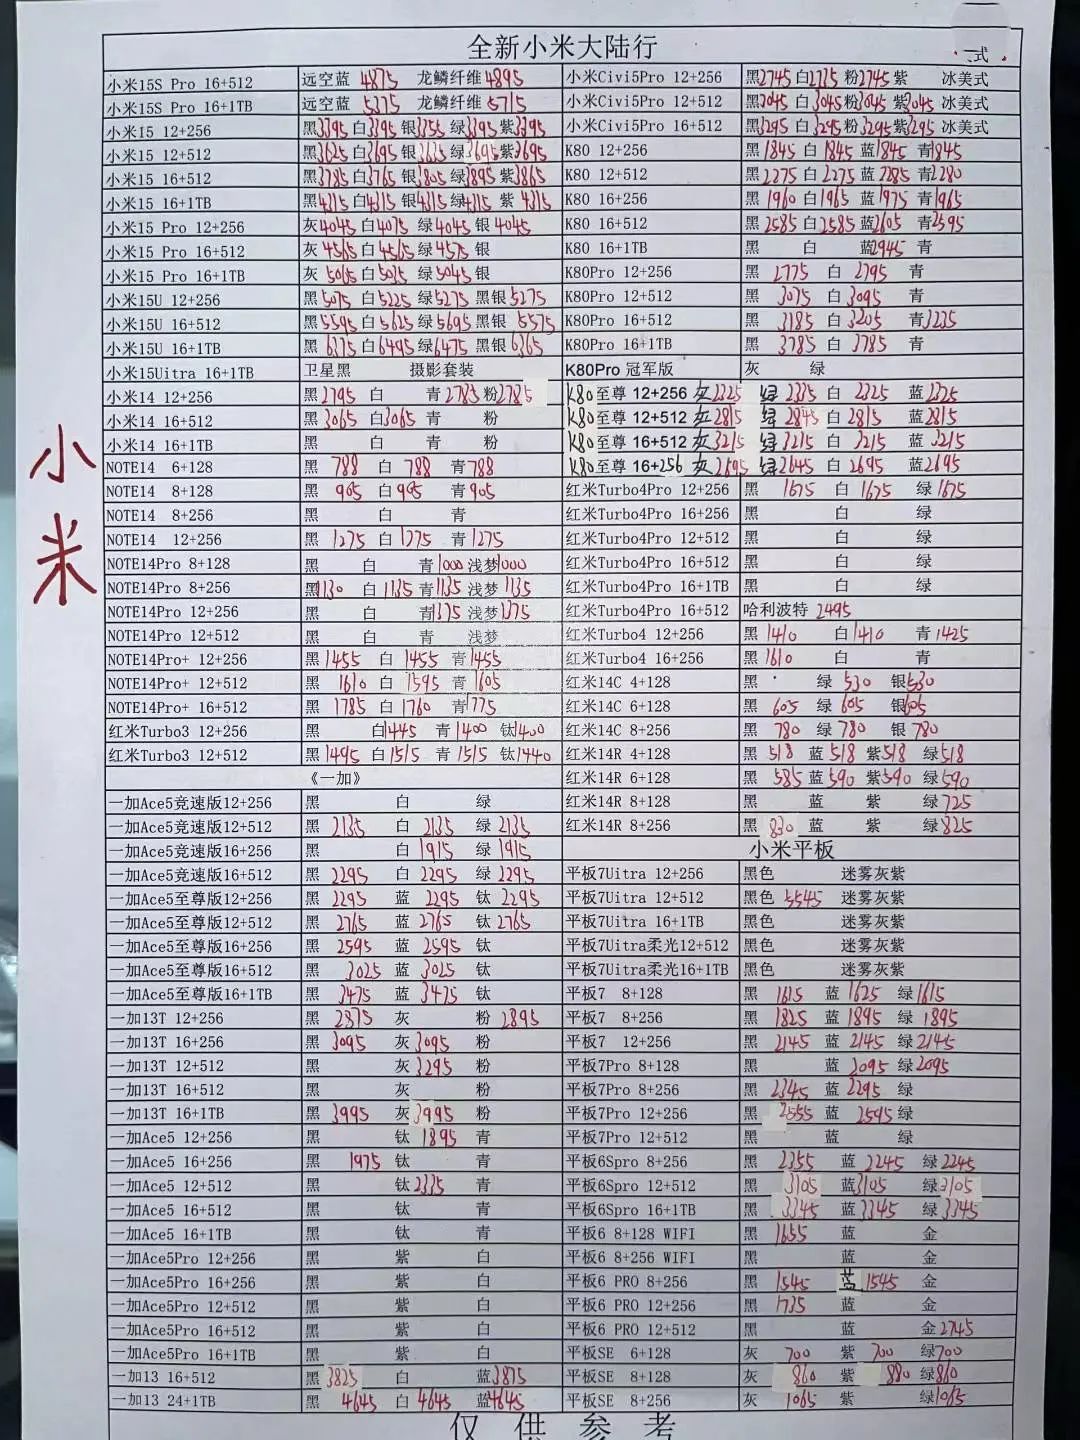 全新小米大陆行
式
小米15S Pro 16+512 远空蓝 4875 龙鳞纤维 4895
小米15S Pro 16+1TB 远空蓝 5275 龙鳞纤维 5715
小米15 12+256 黑3395 白3395 银3355 绿3395 紫3395
小米15 12+512 黑3625 白3695 银3635 绿3695 紫3695
小米15 16+512 黑3785 白3765 银3805 绿3895 紫3865
小米15 16+1TB 黑4315 白4315 银4315 绿4315 紫 4315
小米15 Pro 12+256 灰4045 白4075 绿4045 银4045
小米15 Pro 16+512 灰 4565 白4565 绿4575 银
小米15 Pro 16+1TB 灰 5065 白5035 绿5045 银
小米15U 12+256 黑5075 白5225 绿5275 黑银 5275
小米15U 16+512 黑5595 白5625 绿5695 黑银 5575
小米15U 16+1TB 黑 6375 白6495 绿6475 黑银 6365
小米15Uitra 16+1TB 卫星黑 摄影套装
小米14 12+256 黑2795 白 青2785 粉2785
小米14 16+512 黑3065 白3065 青 粉
小米14 16+1TB 黑 白 青 粉
NOTE14 6+128 黑 788 白 788 青788
NOTE14 8+128 黑 905 白905 青905
NOTE14 8+256 黑 白 青
NOTE14 12+256 黑 1275 白1275 青1275
NOTE14Pro 8+128 黑 白 青1000 浅梦1000
NOTE14Pro 8+256 黑1130 白1135 青1135 浅梦 1135
NOTE14Pro 12+256 黑 白 青1375 浅梦1375
NOTE14Pro 12+512 黑 白 青 浅梦
NOTE14Pro+ 12+256 黑1455 白 1455 青1455
NOTE14Pro+ 12+512 黑 1610 白 1595 青1605
NOTE14Pro+ 16+512 黑 1785 白 1760 青1775
红米Turbo3 12+256 黑 白1445 青1400 钛1400
红米Turbo3 12+512 黑1495 白1515 青1515 钛1440
《一加》
一加Ace5竞速版12+256 黑 白 绿
一加Ace5竞速版12+512 黑 2135 白 2135 绿 2135
一加Ace5竞速版16+256 黑 白1915 绿 1915
一加Ace5竞速版16+512 黑 2295 白 2295 绿 2295
一加Ace5至尊版12+256 黑 2295 蓝 2295 钛 2295
一加Ace5至尊版12+512 黑 2765 蓝 2765 钛2765
一加Ace5至尊版16+256 黑 2595 蓝 2595 钛
一加Ace5至尊版16+512 黑 3025 蓝 3025 钛
一加Ace5至尊版16+1TB 黑 3475 蓝 3475 钛
一加13T 12+256 黑 2875 灰 粉 2895
一加13T 16+256 黑 3095 灰3095 粉
一加13T 12+512 黑 灰3295 粉
一加13T 16+512 黑 灰 粉
一加13T 16+1TB 黑 3995 灰3995 粉
一加Ace5 12+256 黑 钛 1895 青
一加Ace5 16+256 黑 1975 钛 青
一加Ace5 12+512 黑 钛2335 青
一加Ace5 16+512 黑 钛 青
一加Ace5 16+1TB 黑 钛 青
一加Ace5Pro 12+256 黑 紫 白
一加Ace5Pro 16+256 黑 紫 白
一加Ace5Pro 12+512 黑 紫 白
一加Ace5Pro 16+512 黑 紫 白
一加Ace5Pro 16+1TB 黑 紫 白
一加13 16+512 黑3825 白 蓝3875
一加13 24+1TB 黑 4645 白 4645 蓝4645
小米Civi5Pro 12+256 黑2745 白2725 粉2745 紫 冰美式
小米Civi5Pro 12+512 黑3045 白3045 粉3045 紫3045 冰美式
小米Civi5Pro 16+512 黑3295 白3295 粉3295 紫3295 冰美式
K80 12+256 黑1845 白 1845 蓝1845 青1845
K80 12+512 黑2275 白 2275 蓝2285 青2280
K80 16+256 黑1960 白1965 蓝1975 青1965
K80 16+512 黑 2585 白2585 蓝2605 青2595
K80 16+1TB 黑 白 蓝2945 青
K80Pro 12+256 黑 2775 白 2795 青
K80Pro 12+512 黑 3075 白3095 青
K80Pro 16+512 黑 3185 白3205 青3235
K80Pro 16+1TB 黑 3785 白 3785 青
K80Pro 冠军版 灰 绿
K80至尊 12+256 灰2325 绿 2335 白 2325 蓝2325
K80至尊 12+512 灰2815 绿 2845 白 2815 蓝2815
K80至尊 16+512 灰3215 绿3215 白 3215 蓝 3215
K80至尊 16+256 灰2695 绿2645 白 2695 蓝2695
红米Turbo4Pro 12+256 黑 1675 白 1675 绿1675
红米Turbo4Pro 16+256 黑 白 绿
红米Turbo4Pro 12+512 黑 白 绿
红米Turbo4Pro 16+512 黑 白 绿
红米Turbo4Pro 16+1TB 黑 白 绿
红米Turbo4Pro 16+512 哈利波特 2495
红米Turbo4 12+256 黑1410 白1410 青1425
红米Turbo4 16+256 黑1610 白 青
红米14C 4+128 黑 绿 530 银530
红米14C 6+128 黑 605 绿 605 银605
红米14C 8+256 黑 780 绿780 银 780
红米14R 4+128 黑 518 蓝 518 紫518 绿518
红米14R 6+128 黑 585 蓝590 紫590 绿590
红米14R 8+128 黑 蓝 紫 绿725
红米14R 8+256 黑 830 蓝 紫 绿825
小米平板
平板7Uitra 12+256 黑色 迷雾灰紫
平板7Uitra 12+512 黑色 5545 迷雾灰紫
平板7Uitra 16+1TB 黑色 迷雾灰紫
平板7Uitra柔光12+512 黑色 迷雾灰紫
平板7Uitra柔光16+1TB 黑色 迷雾灰紫
平板7 8+128 黑 1615 蓝 1625 绿1615
平板7 8+256 黑 1825 蓝 1895 绿 1895
平板7 12+256 黑 2145 蓝 2145 绿2145
平板7Pro 8+128 黑 蓝 2095 绿2095
平板7Pro 8+256 黑 2345 蓝 2295 绿
平板7Pro 12+256 黑 2555 蓝 2595 绿
平板7Pro 12+512 黑 蓝 绿
平板6Spro 8+256 黑 2355 蓝 2245 绿2245
平板6Spro 12+512 黑 3105 蓝3105 绿3105
平板6Spro 16+1TB 黑 3345 蓝3345 绿3345
平板6 8+128 WIFI 黑 1655 蓝 金
平板6 8+256 WIFI 黑 蓝 金
平板6 PRO 8+256 黑 1545 蓝 1545 金
平板6 PRO 12+256 黑 1735 蓝 金
平板6 PRO 12+512 黑 蓝 金2745
平板SE 6+128 灰 700 紫 700 绿700
平板SE 8+128 灰 860 紫 880 绿860
平板SE 8+256 灰 1065 紫 绿1065
仅供参考
小米